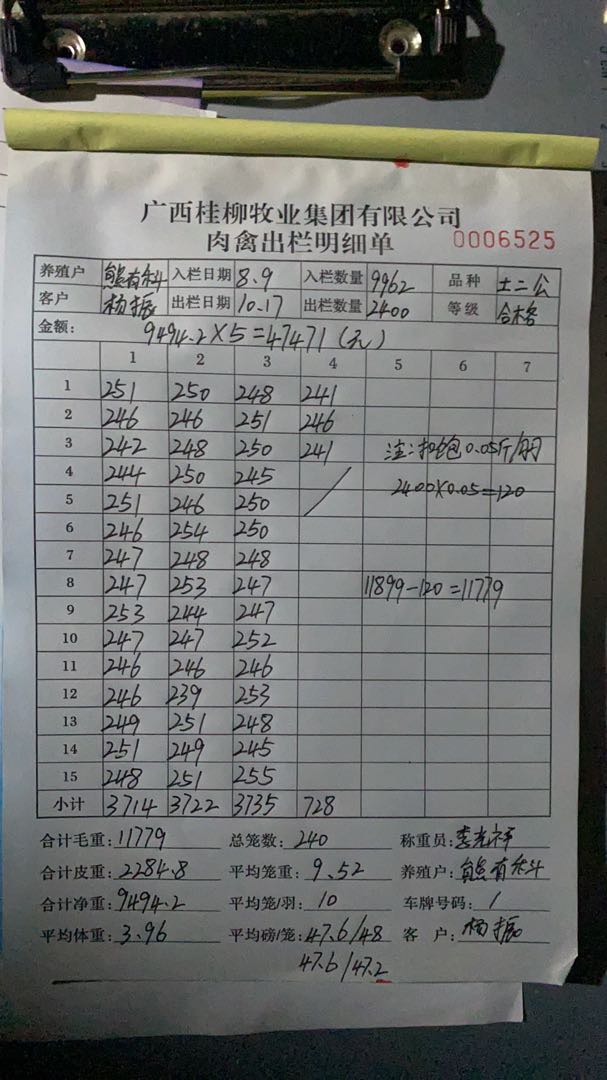 广西桂柳牧业集团有限公司
肉禽出栏明细单 0006525
养殖户 熊有科 入栏日期 8.9 入栏数量 9962 品种 土二公
客户 杨振 出栏日期 10.17 出栏数量 2400 等级 合格
金额: 9494.2×5=47471(元)
1 2 3 4 5 6 7
1 251 250 248 241
2 246 246 251 246
3 242 248 250 241 注:扣饱0.05斤/羽
4 244 250 245 2400×0.05=120
5 251 246 250
6 246 254 250
7 247 248 248
8 247 253 247 11899-120=11779
9 253 244 247
10 247 247 252
11 246 246 246
12 246 239 253
13 249 251 248
14 251 249 245
15 248 251 255
小计 3714 3722 3735 728
合计毛重: 11779 总笼数: 240 称重员: 李光祥
合计皮重: 2284.8 平均笼重: 9.52 养殖户: 熊有科
合计净重: 9494.2 平均笼/羽: 10 车牌号码: 1
平均体重: 3.96 平均磅/笼: 47.6/48 客户: 杨振
47.6/47.2